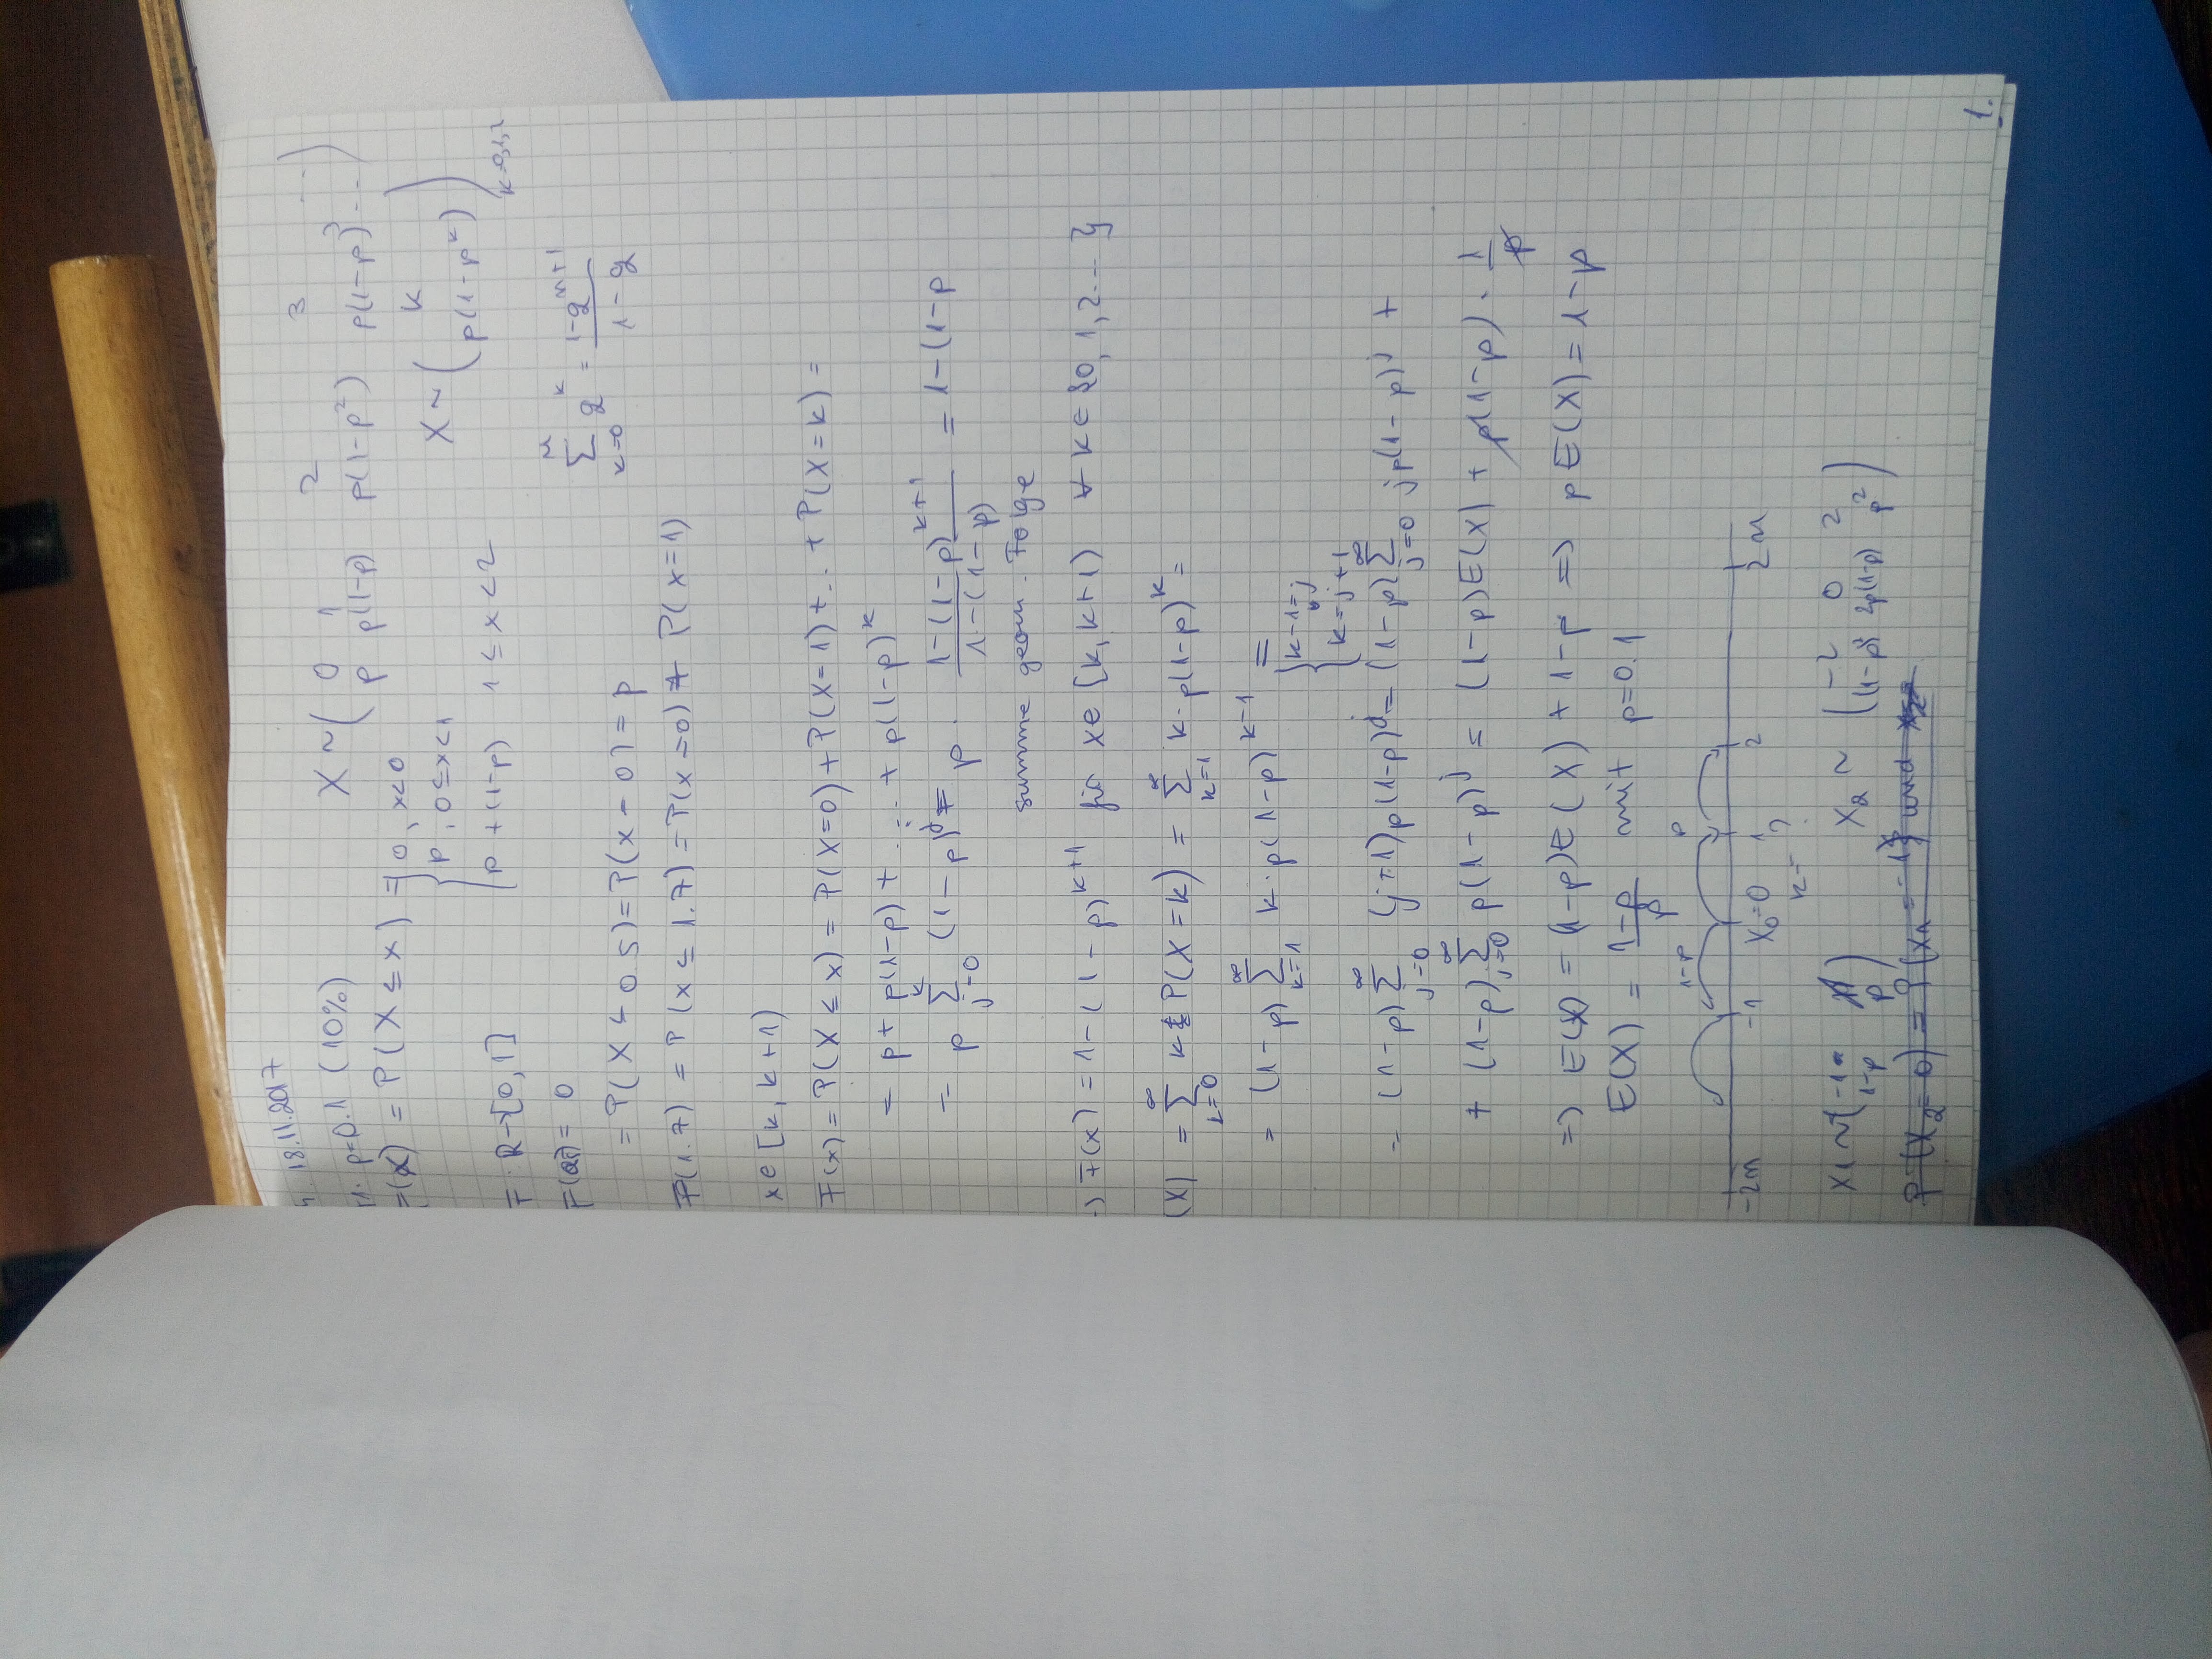 18.11.2017
p=0.1 (10%)
X ~ ( 0 1 2 3 ... )
( p p(1-p) p(1-p²) p(1-p)³ ... )
(x) = P(X ≤ x) = { 0, x<0
p, 0≤x<1
p + (1-p) 1 ≤ x < 2
X ~ ( k
p(1-p^k) ) k=0,1,2
F: R→[0,1]
= 0
∑_{k=0}^{n} q^k = (1-q^{n+1})/(1-q)
= P(X ≤ 0.5) = P(x = 0) = p
F(1.7) = P(x ≤ 1.7) = P(x=0) + P(x=1)
x∈[k, k+1)
F(x) = P(X ≤ x) = P(X=0) + P(X=1) + ... + P(X=k) =
= p + p(1-p) + ... + p(1-p)^k
= p ∑_{j=0}^{k} (1-p)^j = p · (1-(1-p)^{k+1})/(1-(1-p)) = 1-(1-p
summe geom. Folge
F(x) = 1-(1-p)^{k+1} für x∈[k, k+1) ∀ k∈{0,1,2...}
(X) = ∑_{k=0}^{∞} k P(X=k) = ∑_{k=1}^{∞} k·p(1-p)^k =
= (1-p) ∑_{k=1}^{∞} k·p(1-p)^{k-1} =
{ k-1=j
k=j+1
= (1-p) ∑_{j=0}^{∞} (j+1)p(1-p)^j = (1-p) ∑_{j=0}^{∞} jp(1-p)^j +
+ (1-p) ∑_{j=0}^{∞} p(1-p)^j = (1-p)E(X) + p(1-p) · 1/p
=> E(X) = (1-p)E(X) + 1-p => pE(X) = 1-p
E(X) = (1-p)/p mit p=0.1
1-p p
-2n -1 X₀=0 1 2 2n
k=?
X₁ ~ ( -1 1 )
( 1-p p )
X₂ ~ ( -2 0 2 )
( (1-p)² 2p(1-p) p² )
P(X₂=0) = P(X₁=-1) und
1.